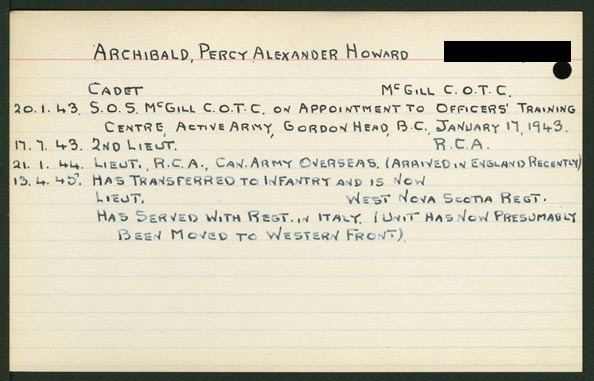 ARCHIBALD, PERCY ALEXANDER HOWARD
CADET McGILL C.O.T.C.
20.1.43. S.O.S. McGILL C.O.T.C. ON APPOINTMENT TO OFFICERS' TRAINING
CENTRE, ACTIVE ARMY, GORDON HEAD, B.C., JANUARY 17, 1943.
17.7.43. 2ND LIEUT. R.C.A.
21.1.44. LIEUT., R.C.A., CAN. ARMY OVERSEAS. (ARRIVED IN ENGLAND RECENTLY)
13.4.45. HAS TRANSFERRED TO INFANTRY AND IS NOW
LIEUT. WEST NOVA SCOTIA REGT.
HAS SERVED WITH REGT. IN ITALY. (UNIT HAS NOW PRESUMABLY
BEEN MOVED TO WESTERN FRONT).